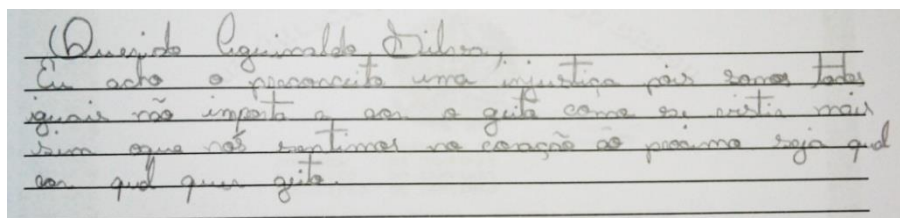 Querido Aguinaldo Silva,
Eu acho o preconceito uma injustiça pois somos todos
iguais não importa a cor o geito como se vistia mais
sim oque nós sentimos no coração ao proximo seja qual
cor qual quer geito.